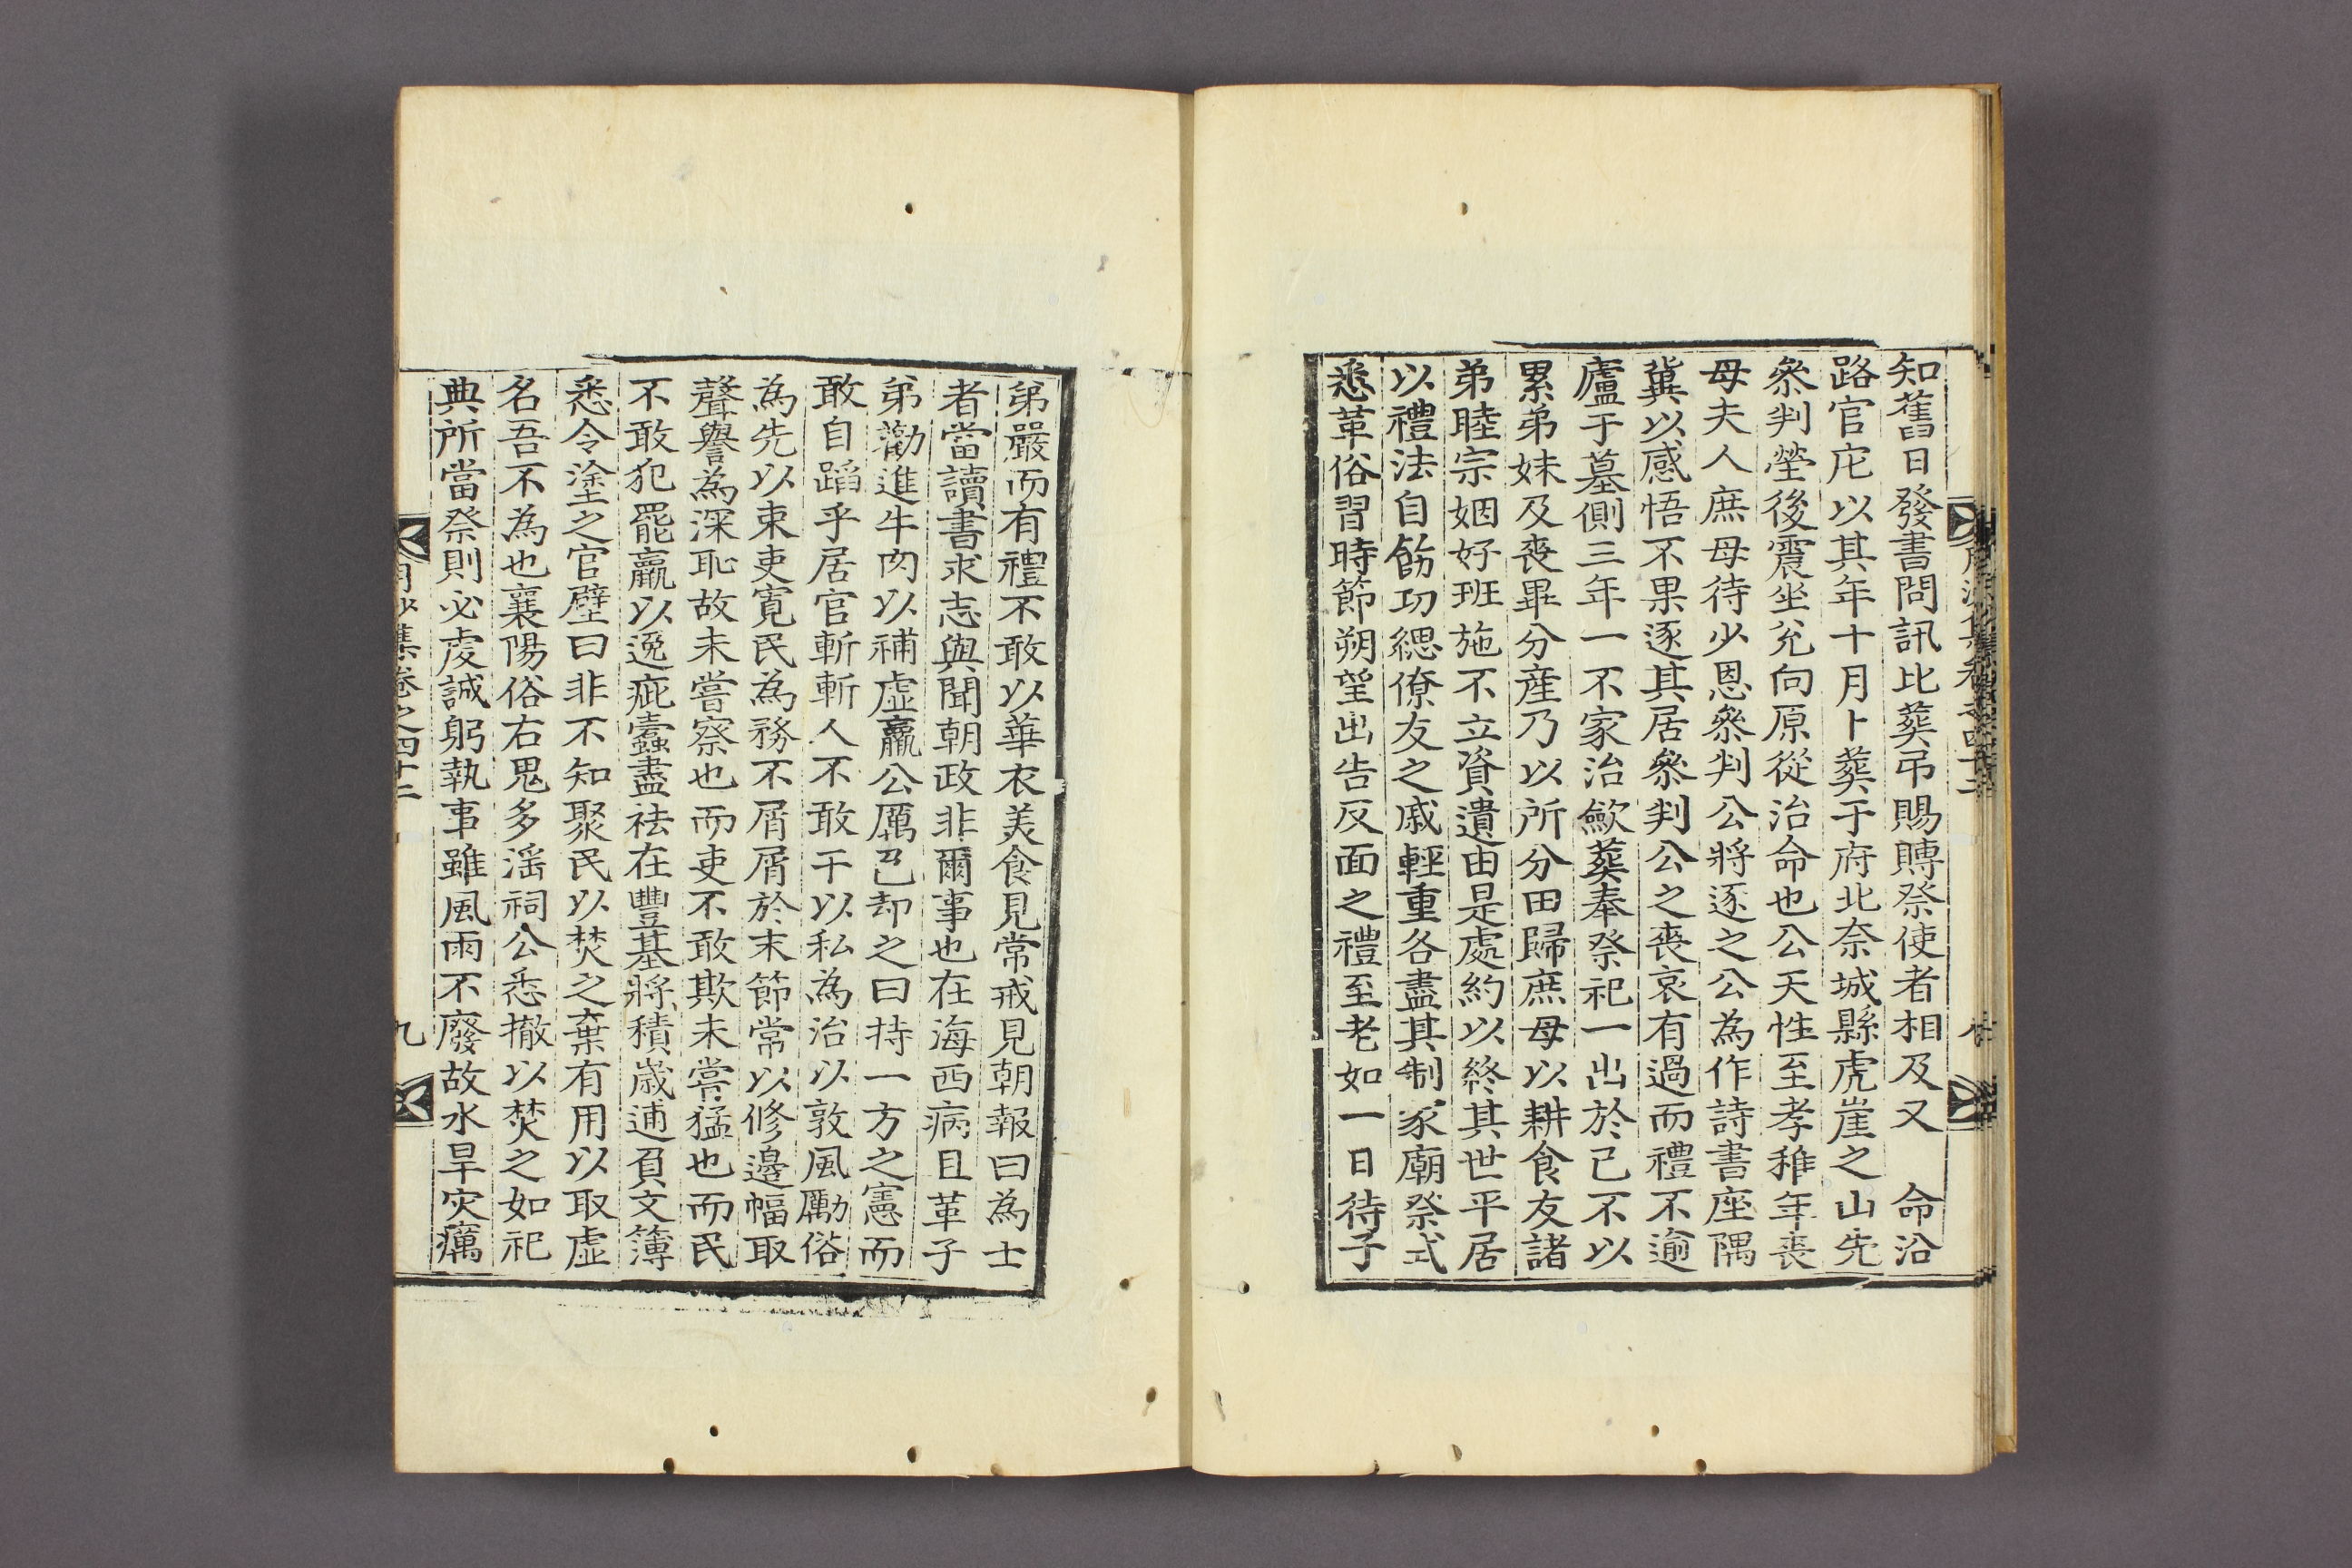 知舊日發書問訊比葬吊賜賻祭使者相及又　命沿
路官庀以其年十月卜葬于府北奈城縣虎崖之山先
叅判塋後震坐兊向原從治命也公天性至孝稚年喪
母夫人庶母待少恩叅判公將逐之公為作詩書座隅
冀以感悟不果逐其居叅判公之喪哀有過而禮不逾
廬于墓側三年一不家治歛葬奉祭祀一出於己不以
累弟妹及喪畢分産乃以所分田歸庶母以耕食友諸
弟睦宗姻好班施不立資遺由是處約以終其世平居
以禮法自飭功緦僚友之戚輕重各盡其制家廟祭式
悉革俗習時節朔望出告反面之禮至老如一日待子
弟嚴而有禮不敢以華衣美食見常戒見朝報曰為士
者當讀書求志與聞朝政非爾事也在海西病且革子
弟勸進牛肉以補虛羸公厲聲却之曰持一方之憲而
敢自蹈乎居官斬斬人不敢干以私為治以敦風勵俗
為先以束吏寬民為務不屑屑於末節常以修邊幅取
聲譽為深恥故未嘗察也而吏不敢欺未嘗猛也而民
不敢犯罷羸以逸疵蠹盡祛在豐基將積歲逋負文簿
悉令塗之官壁曰非不知聚民以焚之棄有用以取虛
名吾不為也襄陽俗右鬼多淫祠公悉撤以焚之如祀
典所當祭則必虔誠躬執事雖風雨不廢故水旱灾癘
集卷之四十二
九